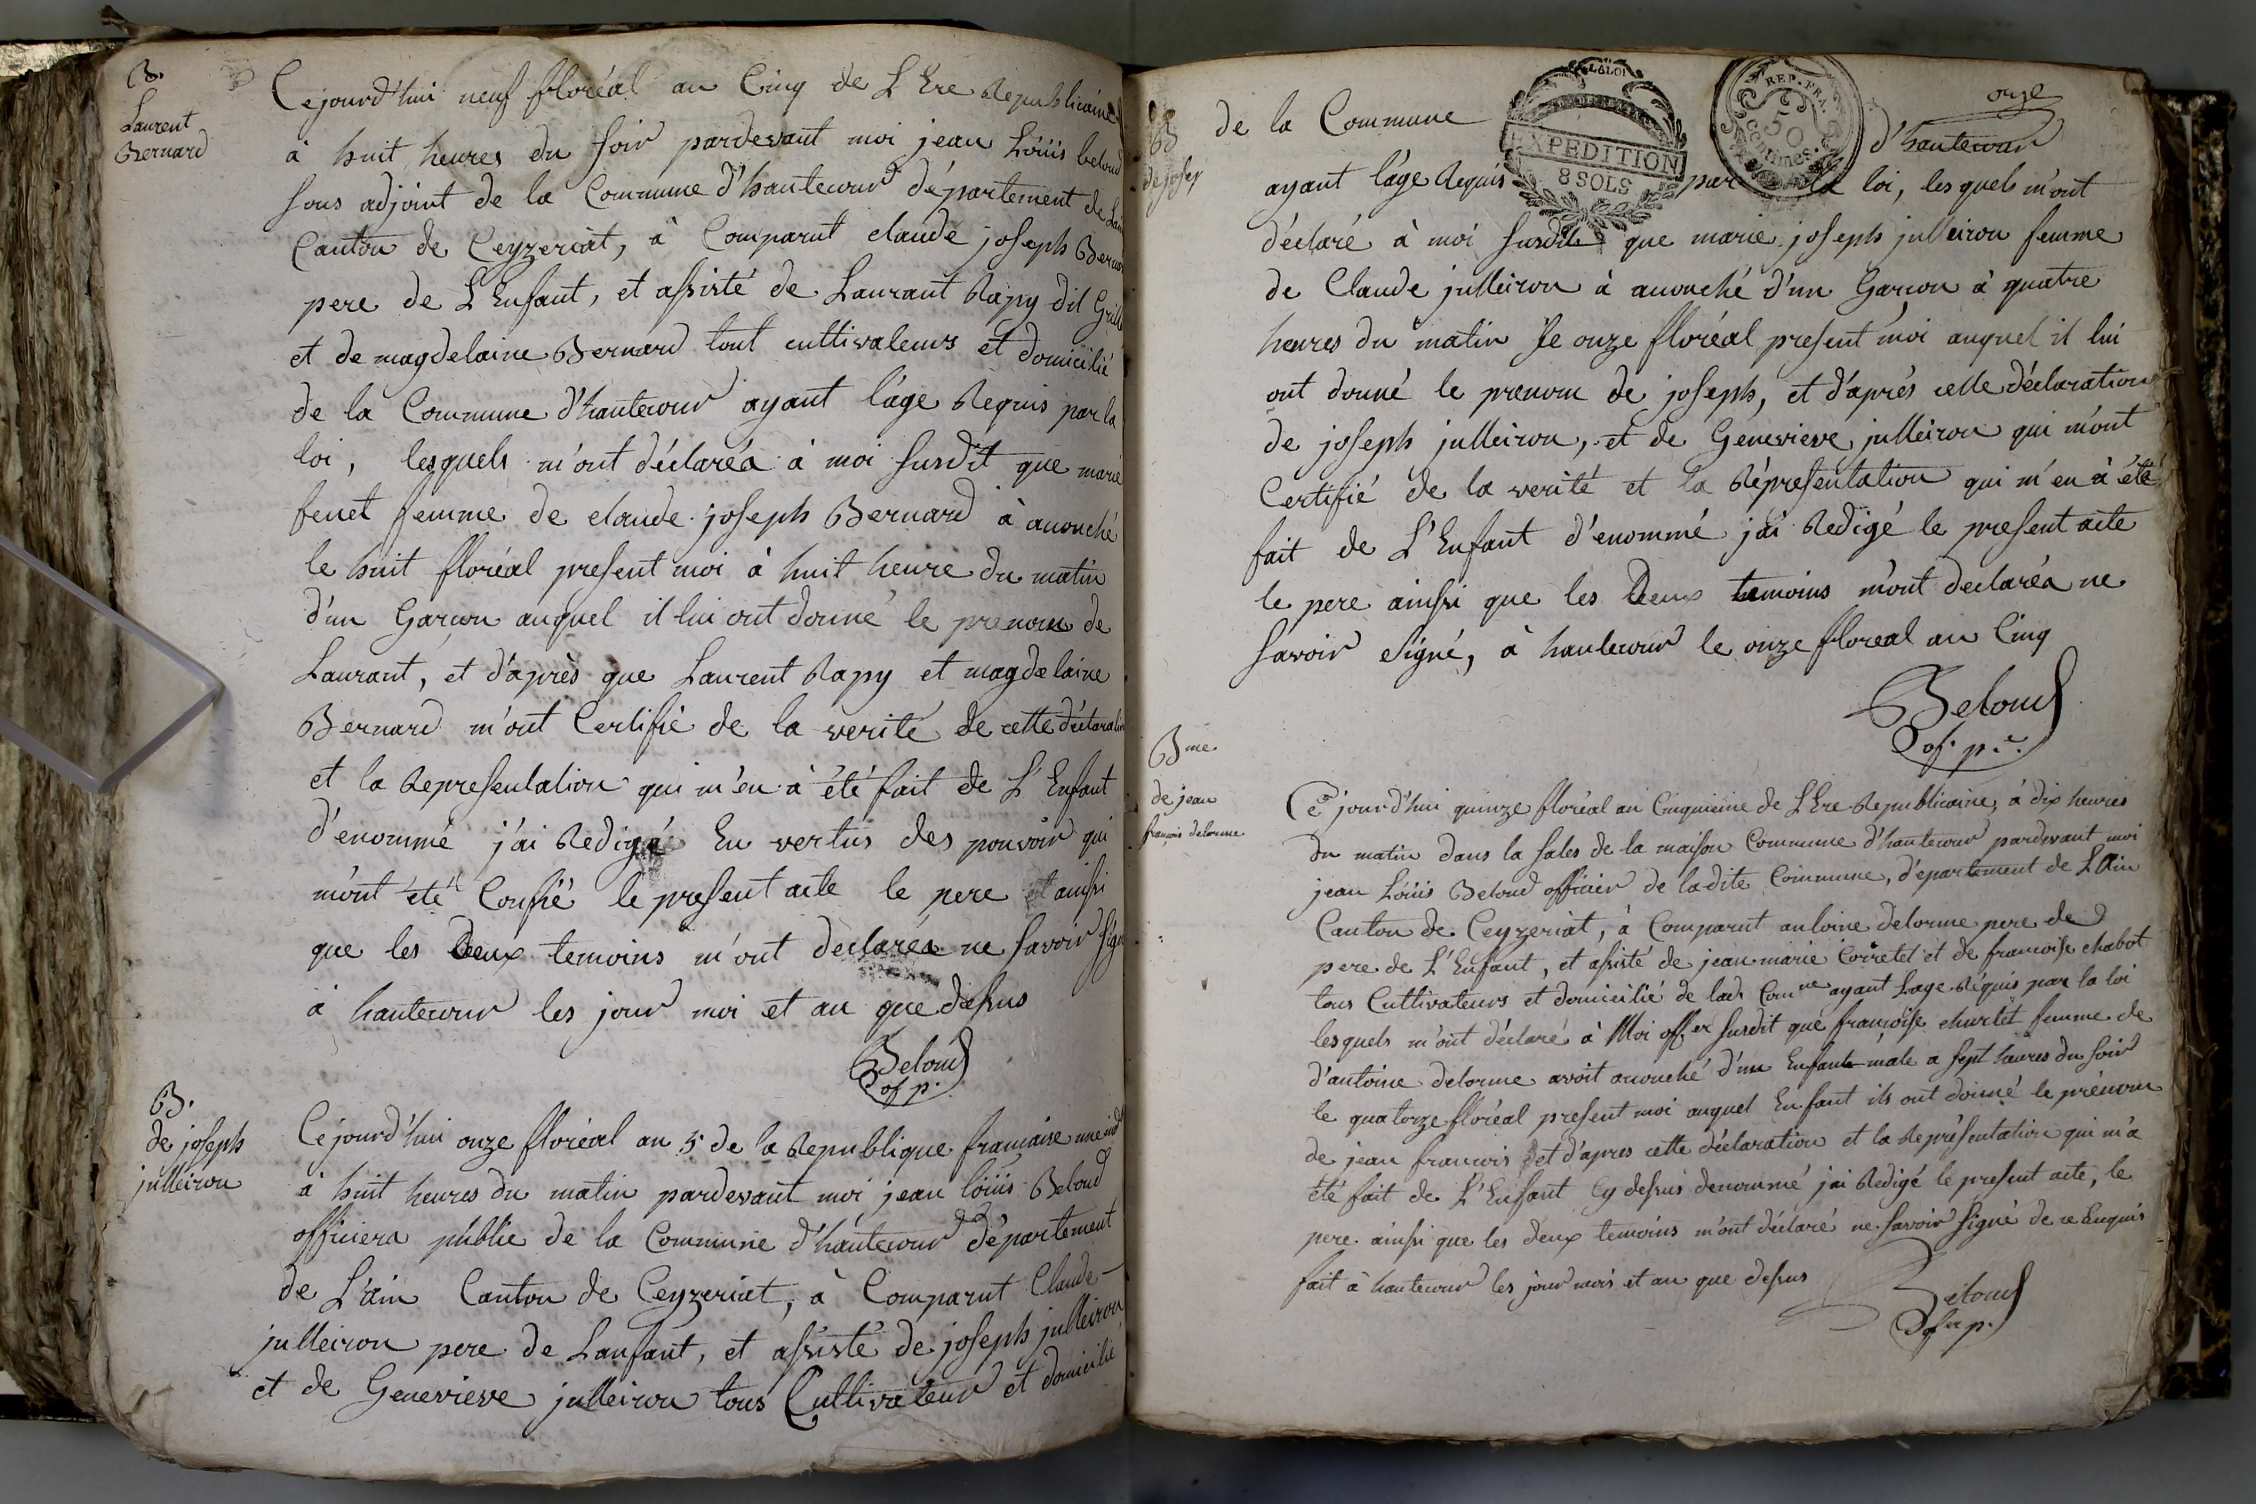 B.
Laurent
Bernard
Cejourd'hui neuf floréal au Cinq de L'Ere Republicaine
à huit heures du soir pardevant moi jean Loüis beloud
sous adjoint de la Commune d'hautecour département de Lain
Canton de Ceyzeriat, à Comparut claude joseph Bernard
pere de L'Enfant, et assisté de Laurant Rapy dit Grill
et de magdelaine Bernard tout cultivateurs et domicilié
de la Commune d'hautecour ayant l'age Requis par la
loi, lesquels m'ont déclaréa à moi susdit que marie
fenet femme de claude joseph Bernard à acouché
le huit floréal present moi à huit heure du matin
d'un Garcon auquel il lui ont donné le prenom de
Laurant, et d'après que Laurent Rapy et magdelaine
Bernard m'ont Certifié de la verité de cette déclaration
et la Representation qui m'en à été fait de L'Enfant
d'enommé j'ai Redigé En vertus des pouvoir qui
m'ont été Confié le present acte le pere et ainsi
que les Deux temoins m'ont declaréa ne savoir signé
à hautecour les jour moi et an que dessus
Beloud
of. p.
B.
de joseph
julleiron
Cejourd'hui onze floréal an 5 de la Republique francaise une ind
à huit heures du matin pardevant moi jean loüis Beloud
officiera publie de la Commune d'hautecour département
de L'ain Canton de Ceyzeriat, à Comparut Claude
julleiron pere de Lanfant, et assisté de joseph julleiron
et de Genevieve julleiron tous Cultivateur et domicilie
onze
B
de josep
de la Commune d'hautecour
LA LOI
EXPEDITION
8 SOLS
REP. FRA.
50
centimes.
ayant l'age Requis par la loi, lesquels m'ont
déclaré à moi susdit que marie joseph julleiron femme
de Claude julleiron à acouché d'un Garcon à quatre
heures du matin le onze floréal present moi auquel il lui
ont donné le prenom de joseph, et d'aprés cette déclaration
de joseph julleiron, et de Genevieve julleiron qui m'ont
Certifié de la verité et la Répresentation qui m'en à été
fait de L'Enfant d'enommé j'ai Redigé le present acte
le pere ainsi que les Deux temoins m'ont declaréa ne
savoir signé, à hautecour le onze floreal an Cinq
Beloud
of. p.
Bme
de jean
francois delorme
Cejourd'hui quinze floréal an Cinquieme de L'Ere Republicaine, à dix heures
du matin dans la sales de la maison Commune d'hautecour pardevant moi
jean Loüis Beloud officier de ladite Commune, département de L'Ain
Canton de Ceyzeriat, à Comparut antoine delorme pere de
pere de L'Enfant, et assisté de jean marie Corretet et de francoise chabot
tous Cultivateurs et domicilié de lad. Comne ayant Lage Réquis par la loi
lesquels m'ont déclaré à Moi offer susdit que francoise churlet femme de
d'antoine delorme avoit acouché d'un Enfant male a sept heures du soir
le quatorze floréal present moi auquel Enfant ils ont donné le prénom
de jean francois et d'apres cette déclaration et la Représentation qui m'a
été fait de L'Enfant Cy dessus denommé j'ai Redigé le present acte, le
pere ainsi que les deux temoins m'ont déclaré ne savoir signé de ce Enquis
fait à hautecour les jour mois et an que dessus
Beloud
ofer p.